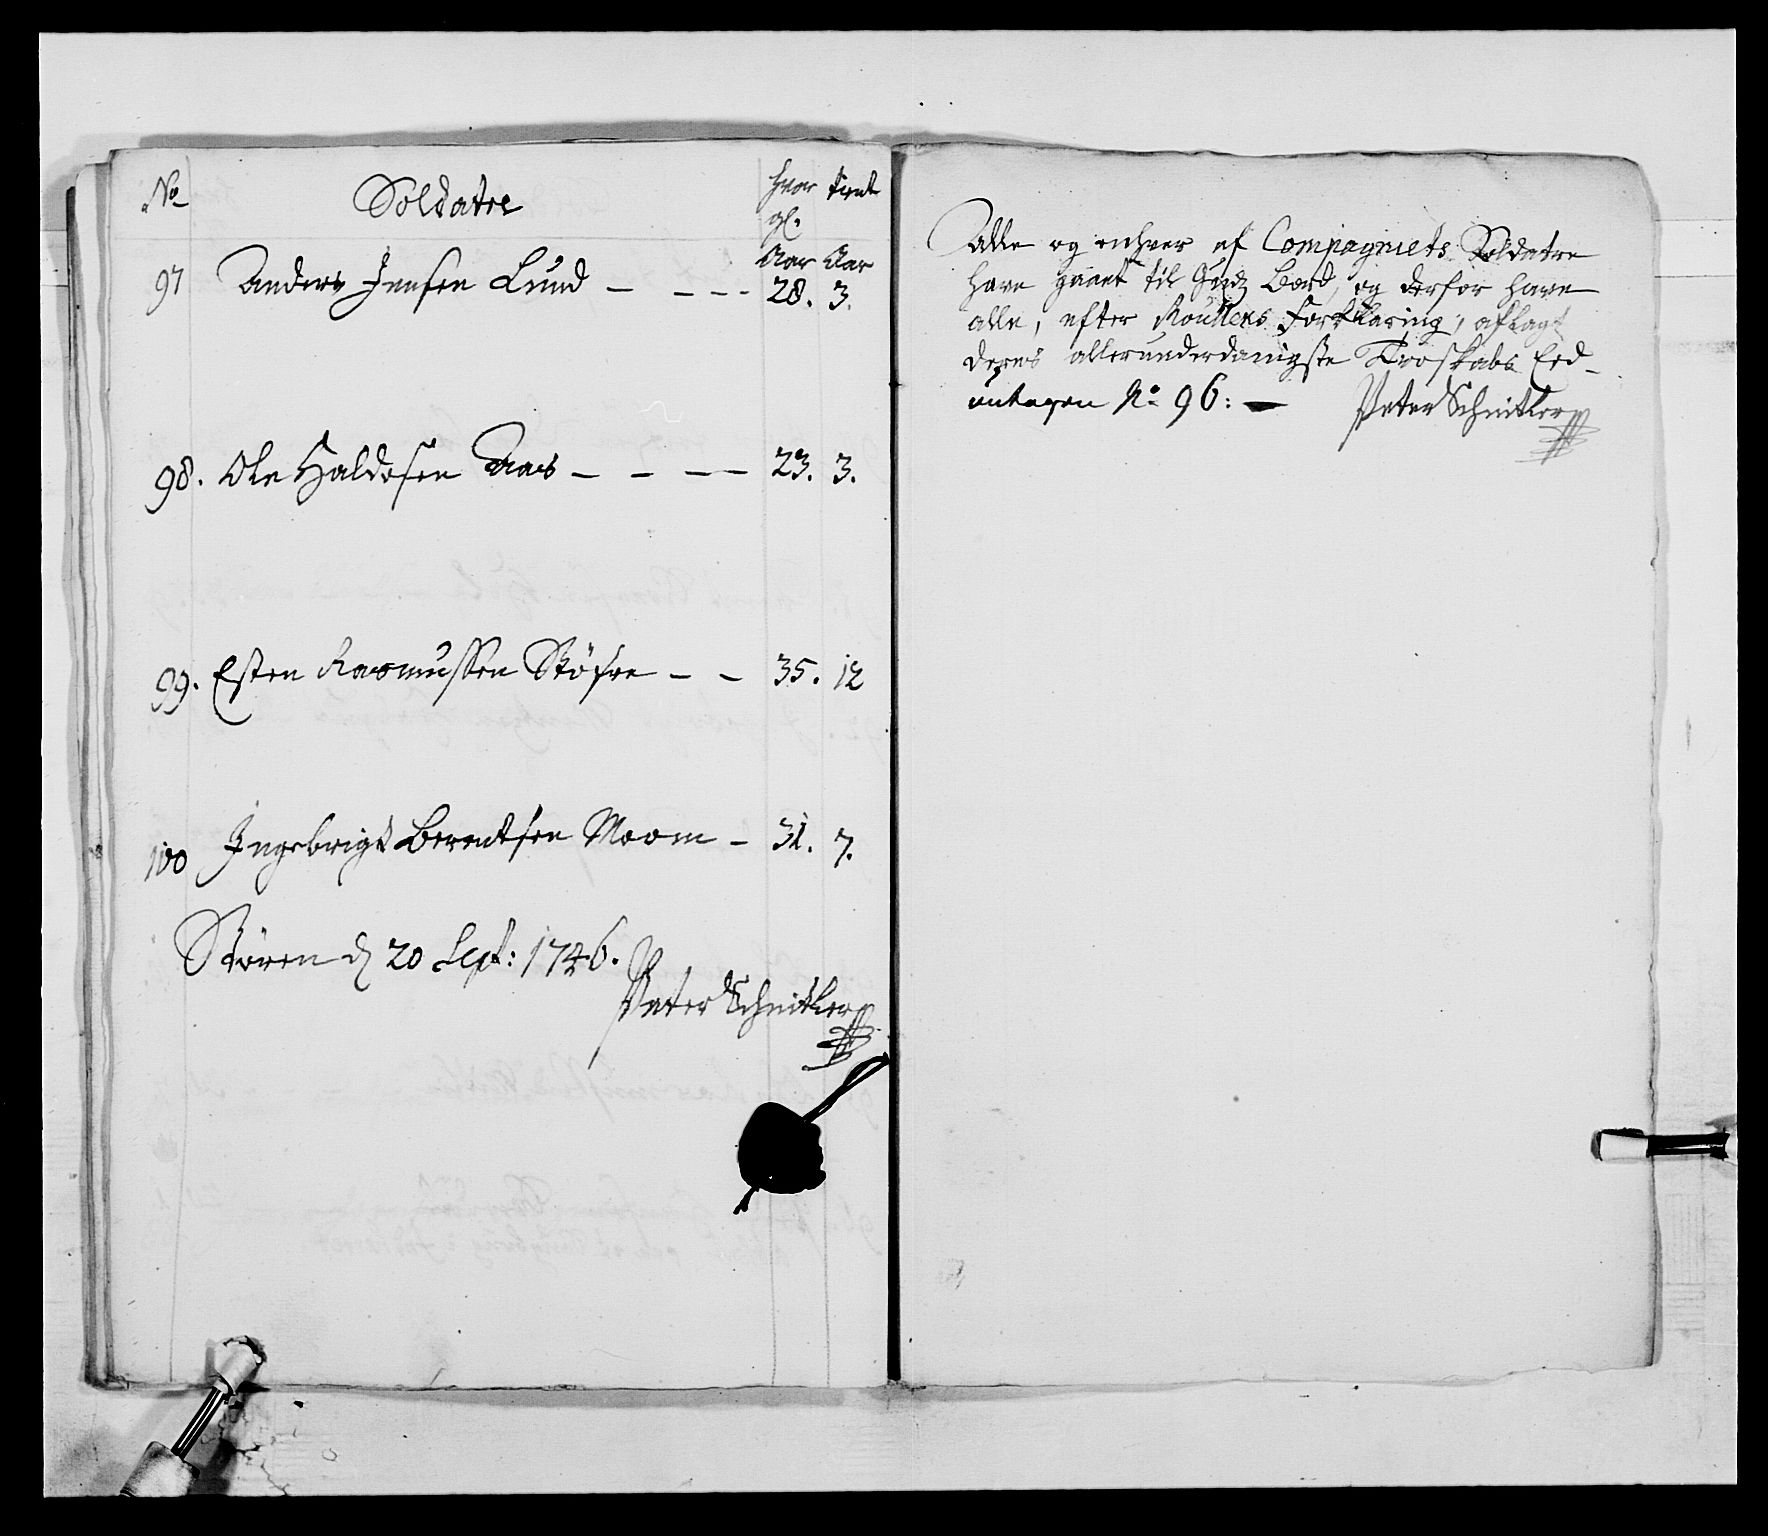 No Soldatre hvor tient
gl.
Aar Aar
97 Anders Jensen Lund — — — — 28. 3.
98. Ole Haldosen Aas — — — — 23. 3.
99. Esten Rasmussen Støfre — — 35. 12
100 Ingebrigt Berentsen Moom — 31. 7.
Støren d 20 Sept: 1746.
Peter Schnitler
Alle og enhver af Compagniets Soldatre
have gaaet til Gudz Bord, og derfor have
alle, efter Roullens Forklaring, aflagt
deres allerunderdanigste Troskabs Eed
undtagen No 96: —
Peter Schnitler